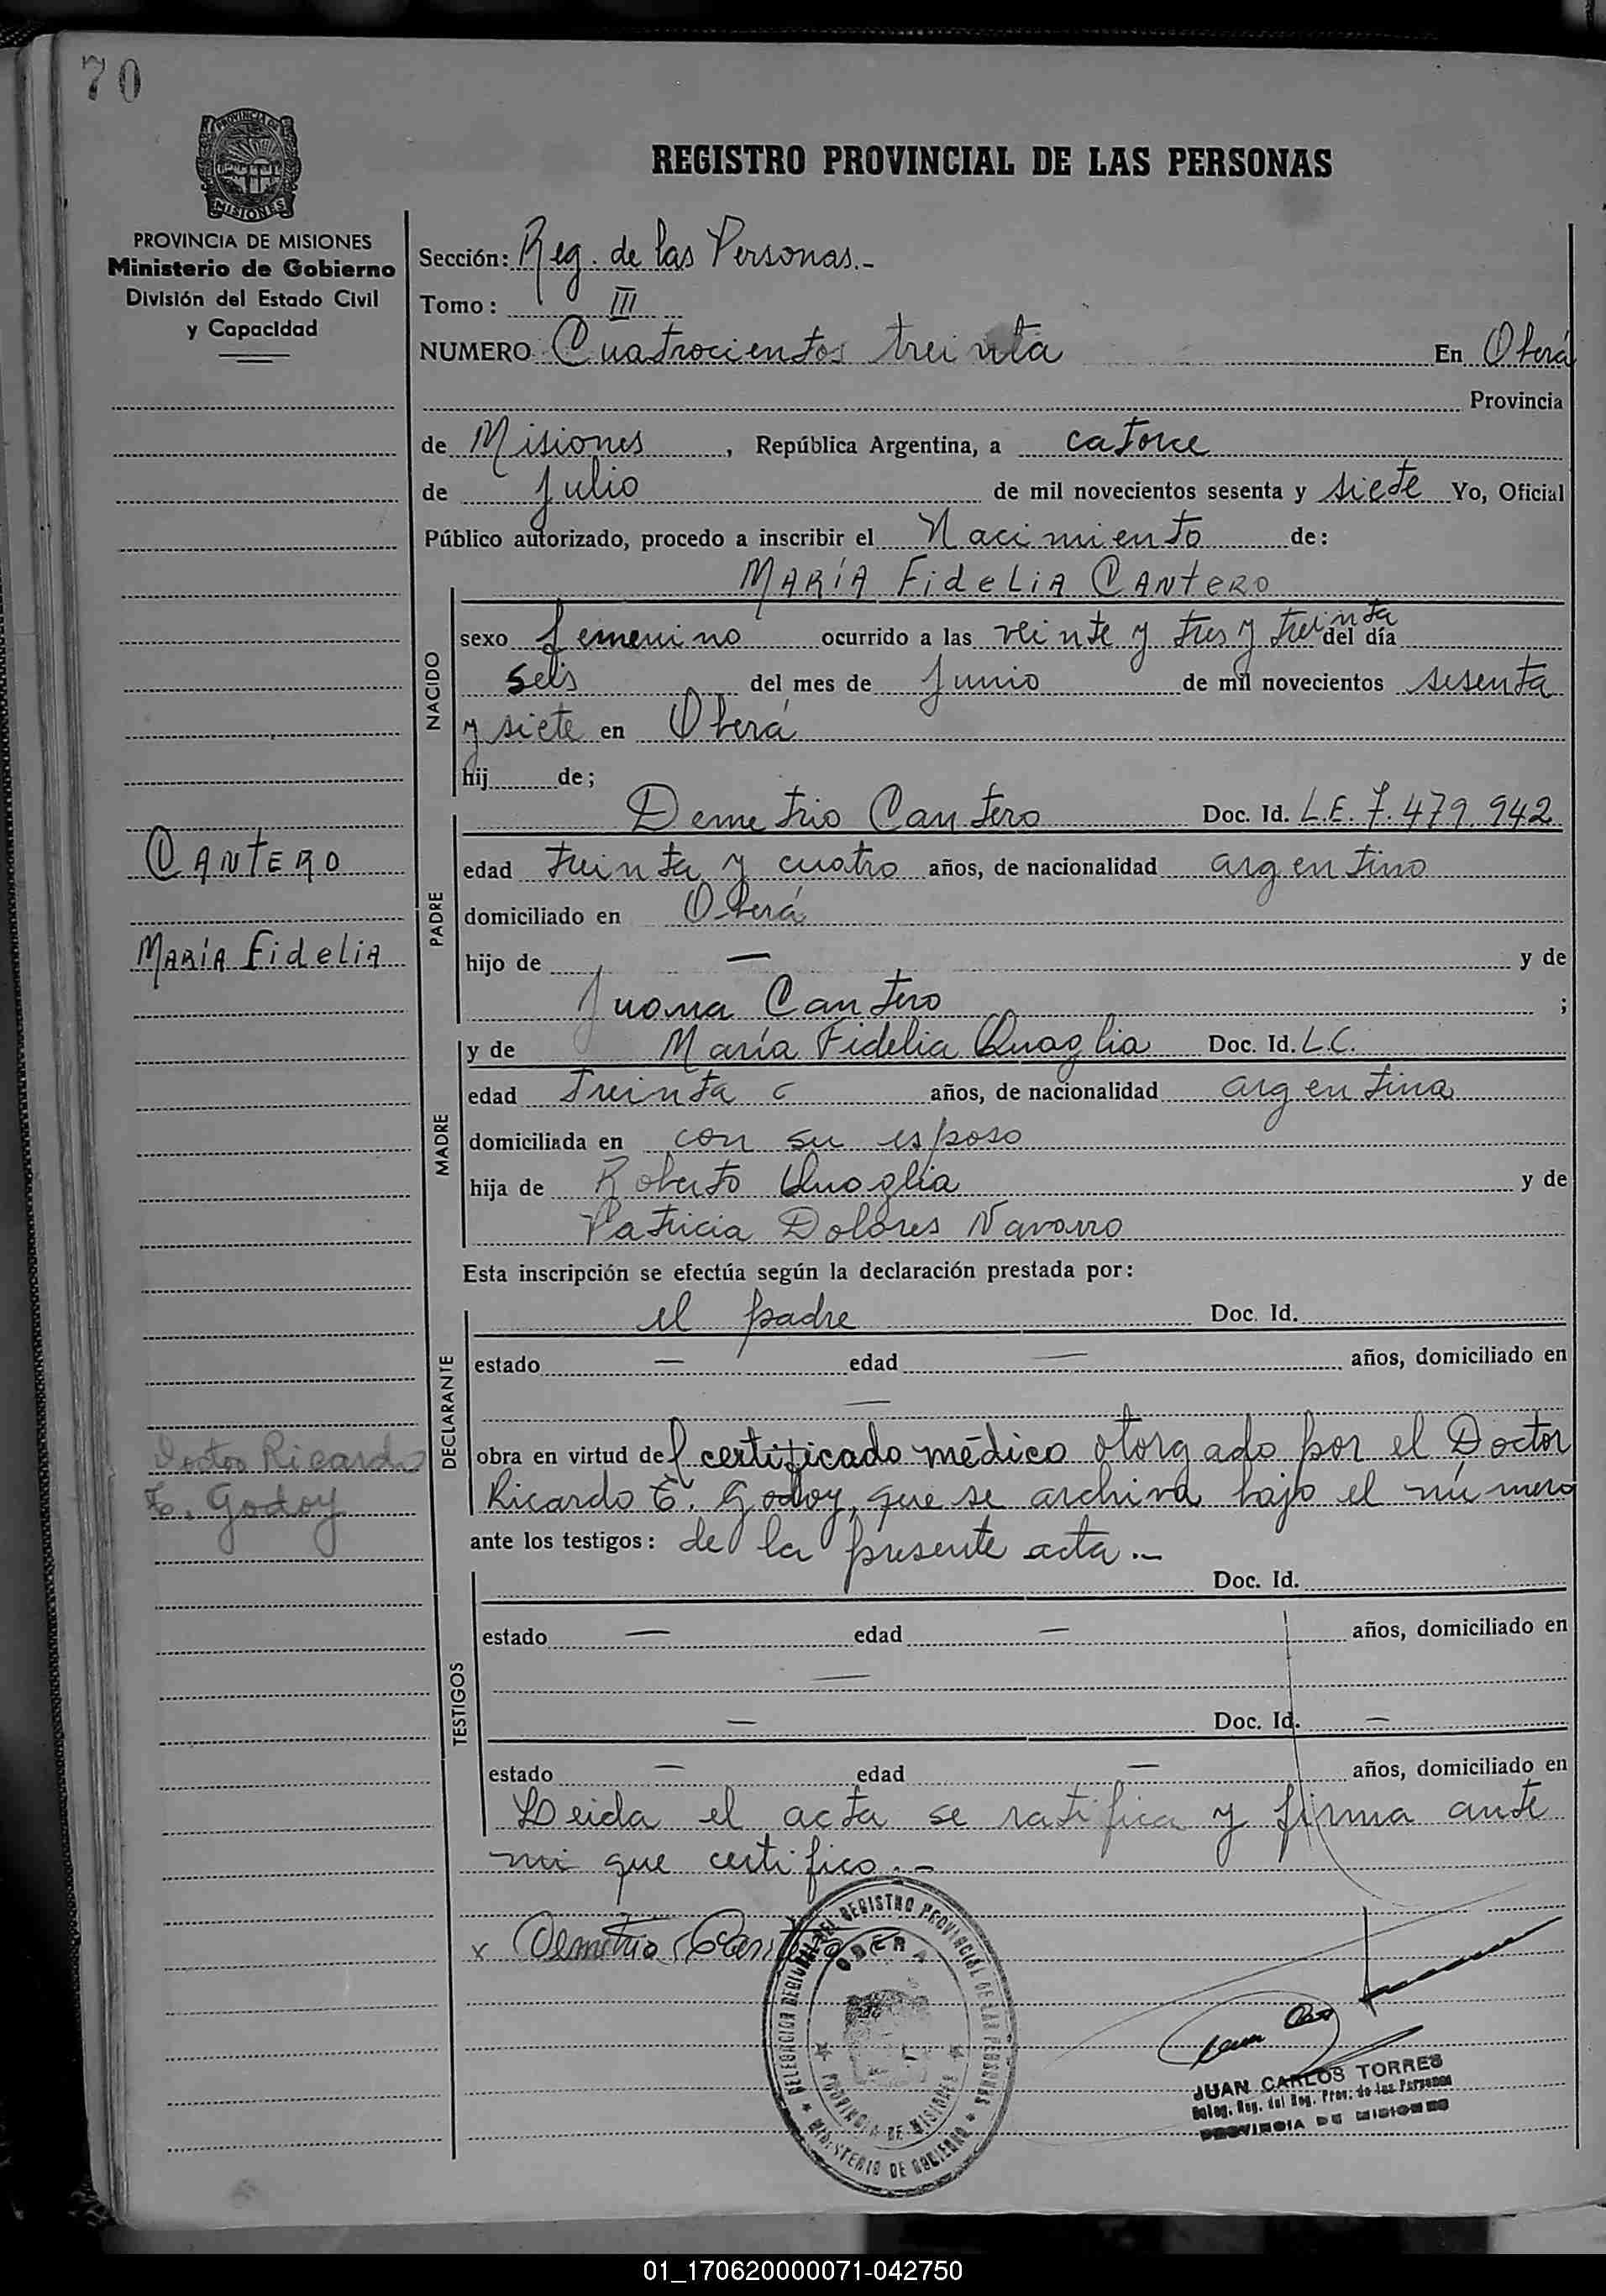 70
PROVINCIA DE MISIONES
PROVINCIA DE MISIONES
Ministerio de Gobierno
División del Estado Civil
y Capacidad
REGISTRO PROVINCIAL DE LAS PERSONAS
Sección: Reg. de las Personas.-
Tomo: III
NUMERO Cuatrocientos treinta En Oberá
Provincia
de Misiones, República Argentina, a catorce
de Julio de mil novecientos sesenta y siete Yo, Oficial
Público autorizado, procedo a inscribir el Nacimiento de:
MARÍA FideLiA CANtERO
NACIDO
sexo femenino ocurrido a las veinte y tres y treinta del día
seis del mes de Junio de mil novecientos sesenta
y siete en Oberá
hij de;
CANtERO
MARÍA FideliA
PADRE
Demetrio Cantero Doc. Id. L.E. 7.479.942
edad treinta y cuatro años, de nacionalidad argentino
domiciliado en Oberá
hijo de — y de
Juana Cantero ;
MADRE
y de María Fidelia Quaglia Doc. Id. L.C.
edad treinta años, de nacionalidad argentina
domiciliada en con su esposo
hija de Roberto Quaglia y de
Patricia Dolores Navarro
Esta inscripción se efectúa según la declaración prestada por:
DECLARANTE
el padre Doc. Id.
estado — edad — años, domiciliado en
—
obra en virtud del certificado médico otorgado por el Doctor
Ricardo E. Godoy, que se archiva bajo el número
ante los testigos: de la presente acta.-
Doctor Ricardo
E. Godoy
TESTIGOS
Doc. Id.
estado — edad — años, domiciliado en
—
— Doc. Id. —
estado — edad — años, domiciliado en
Leida el acta se ratifica y firma ante
mi que certifico.-
x Demetrio Cantero
DELEGACION REGIONAL DEL REGISTRO PROVINCIAL DE LAS PERSONAS
OBERA
PROVINCIA DE MISIONES
MINISTERIO DE GOBIERNO
JUAN CARLOS TORRES
Deleg. Reg. del Reg. Prov. de las Personas
PROVINCIA DE MISIONES
01_170620000071-042750